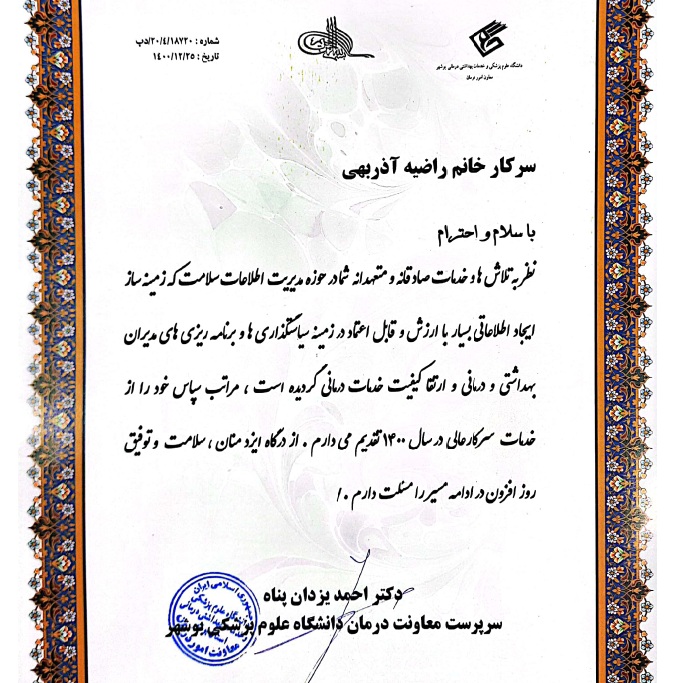 شماره : ۲۰/۴/۱۸۷۲۰/دپ
تاریخ : ۱۴۰۰/۱۲/۲۵
دانشگاه علوم پزشکی و خدمات بهداشتی درمانی بوشهر
معاونت امور درمان
سرکار خانم راضیه آذربهی
با سلام و احترام
نظر به تلاش ها و خدمات صادقانه و متعهدانه شما در حوزه مدیریت اطلاعات سلامت که زمینه ساز
ایجاد اطلاعاتی بسیار با ارزش و قابل اعتماد در زمینه سیاستگذاری ها و برنامه ریزی های مدیران
بهداشتی و درمانی و ارتقا کیفیت خدمات درمانی گردیده است ، مراتب سپاس خود را از
خدمات سرکارعالی در سال ۱۴۰۰ تقدیم می دارم . از درگاه ایزد منان ، سلامت و توفیق
روز افزون در ادامه مسیر را مسئلت دارم . /
دکتر احمد یزدان پناه
سرپرست معاونت درمان دانشگاه علوم پزشکی بوشهر
جمهوری اسلامی ایران
معاونت امور درمان